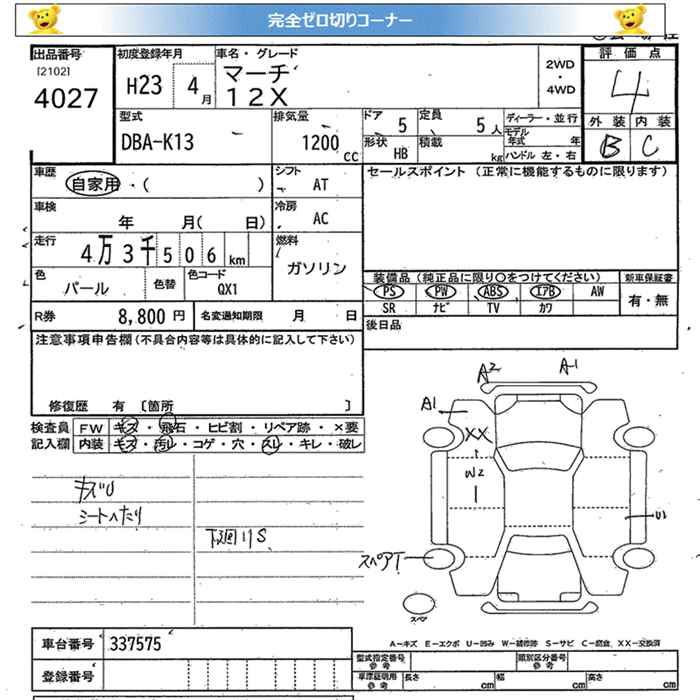 完全ゼロ切りコーナー
出品番号
[2102]
4027
初度登録年月
H23 4月
車名・グレード
マーチ
12X
2WD
・
4WD
評価点
4
外装 内装
B C
型式
DBA-K13
排気量
1200 CC
ドア 5
定員 5人
形状 HB
積載 kg
ディーラー・並行
モデル年式 年
ハンドル 左・右
車歴
自家用・( )
シフト
AT
セールスポイント (正常に機能するものに限ります)
車検
年 月( 日)
冷房
AC
走行
4万3千506km
燃料
ガソリン
色
パール
色替
色コード
QX1
装備品(純正品に限り○をつけてください)
PS PW ABS エアB AW
SR ナビ TV カワ
新車保証書
有・無
R券 8,800円
名変通知期限 月 日
後日品
注意事項申告欄(不具合内容等は具体的に記入して下さい)
修復歴 有 [箇所 ]
検査員記入欄
FW キズ・飛石・ヒビ割・リペア跡・×要
内装 キズ・汚レ・コゲ・穴・スレ・キレ・破レ
シートへたり
下廻りS
A2
A-1
A1
XX
W2
U1
スペアT
スペア
A-キズ E-エクボ U-凹み W-補修跡 S-サビ C-腐食、XX-交換済
車台番号 337575
登録番号
型式指定番号 参考
類別区分番号 参考
車庫証明用 参考
長さ cm
幅 cm
高さ cm